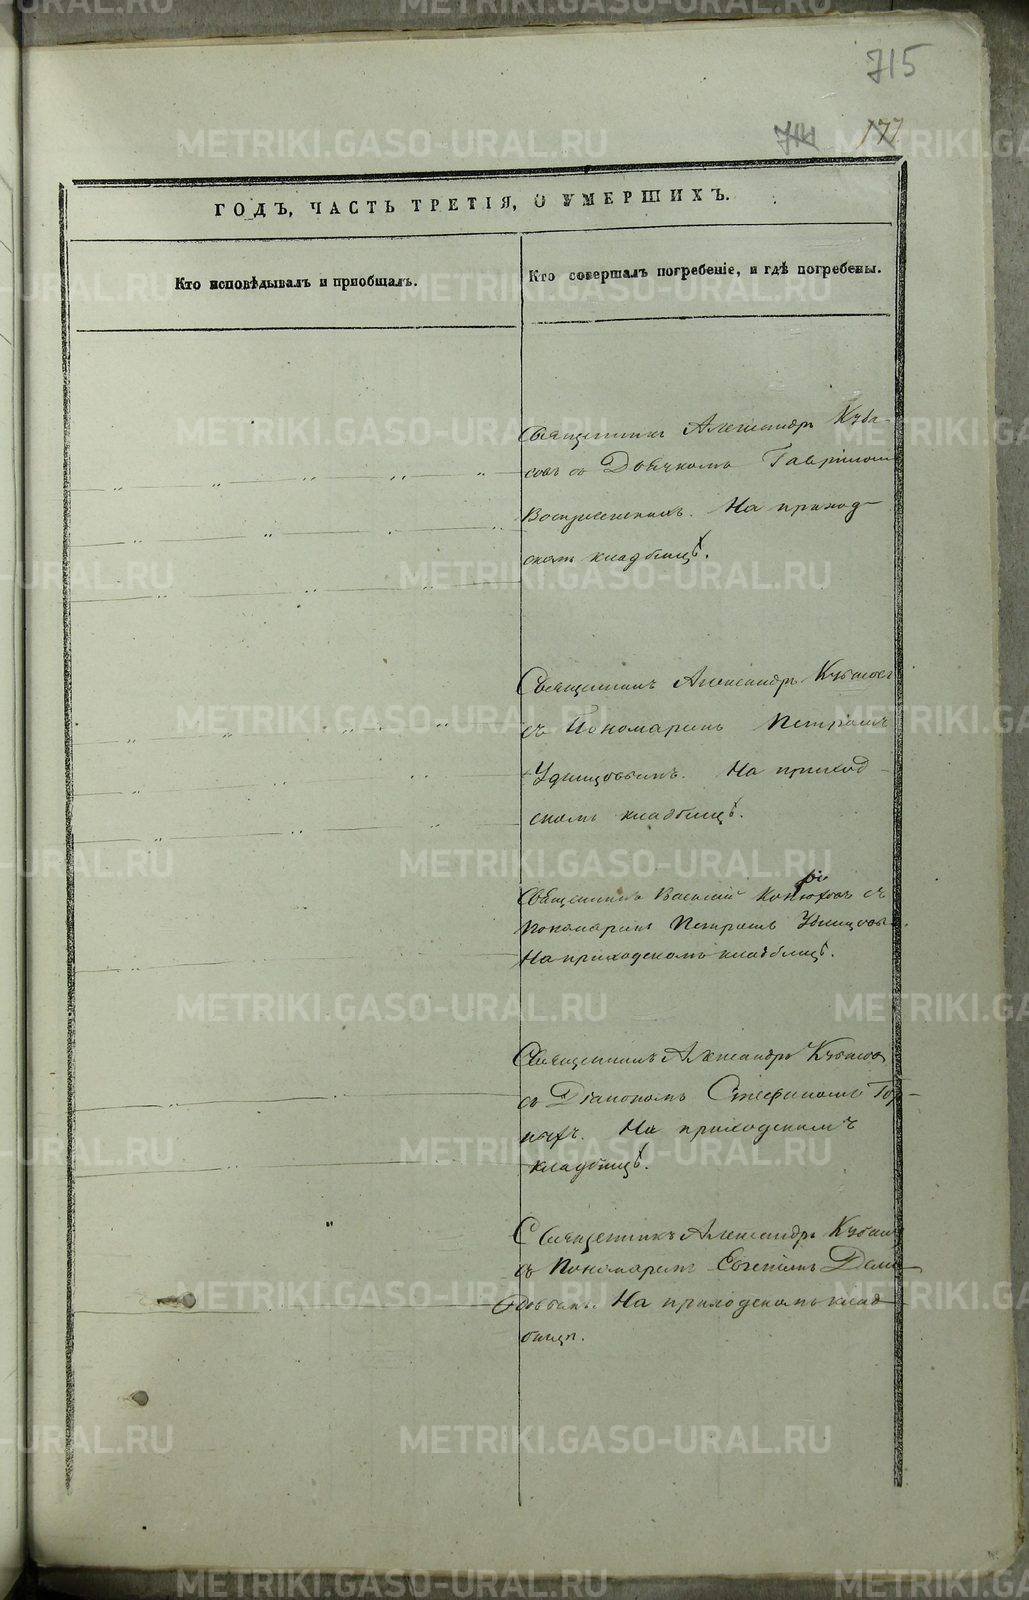 715
714 177
ГОДЪ, ЧАСТЬ ТРЕТІЯ, О УМЕРШИХЪ.
Кто исповѣдывалъ и пріобщалъ.
Кто совершалъ погребеніе, и гдѣ погребены.
Священникъ Александръ Куба-
совъ съ Дьячкомъ Гавріиломъ
Воскресенскимъ. На приход-
скомъ кладбищѣ.
Священникъ Александръ Кубасовъ
съ Пономаремъ Петромъ
Удинцовымъ. На приход-
скомъ кладбищѣ.
Священникъ Василій съ
Пономаремъ Петромъ Удинцовы
На приходскомъ кладбищѣ.
Священникъ Александръ Кубасов
съ Діакономъ Стефаномъ
На приходскомъ
кладбищѣ.
Священникъ Александръ Кубасо
съ Пономаремъ Евгеніемъ
На приходскомъ клад
бищѣ.
METRIKI.GASO-URAL.RU